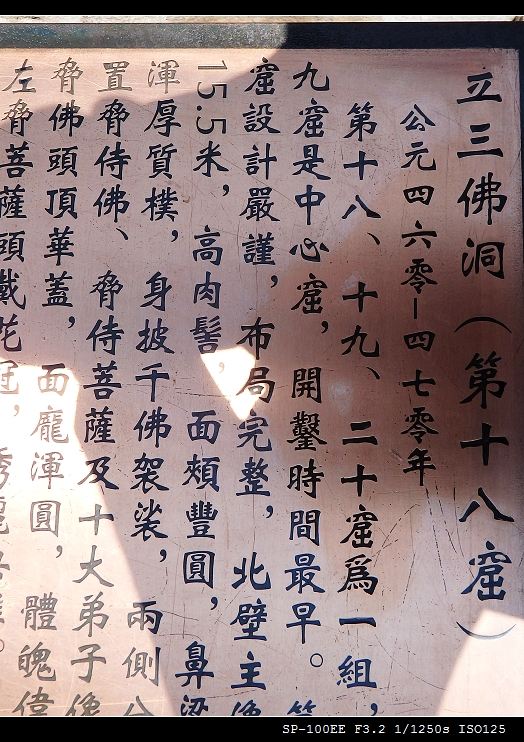 立三佛洞（第十八窟）
公元四六零－四七零年
第十八、十九、二十窟爲一組，
九窟是中心窟，開鑿時間最早。第
窟設計嚴謹，布局完整，北壁主像
15.5米，高肉髻，面頰豐圓，鼻梁
渾厚質樸，身披千佛袈裟，兩側分
置脅侍佛、脅侍菩薩及十大弟子像
脅佛頭頂華蓋，面龐渾圓，體魄偉
左脅菩薩頭戴花冠，秀麗
SP-100EE F3.2 1/1250s ISO125